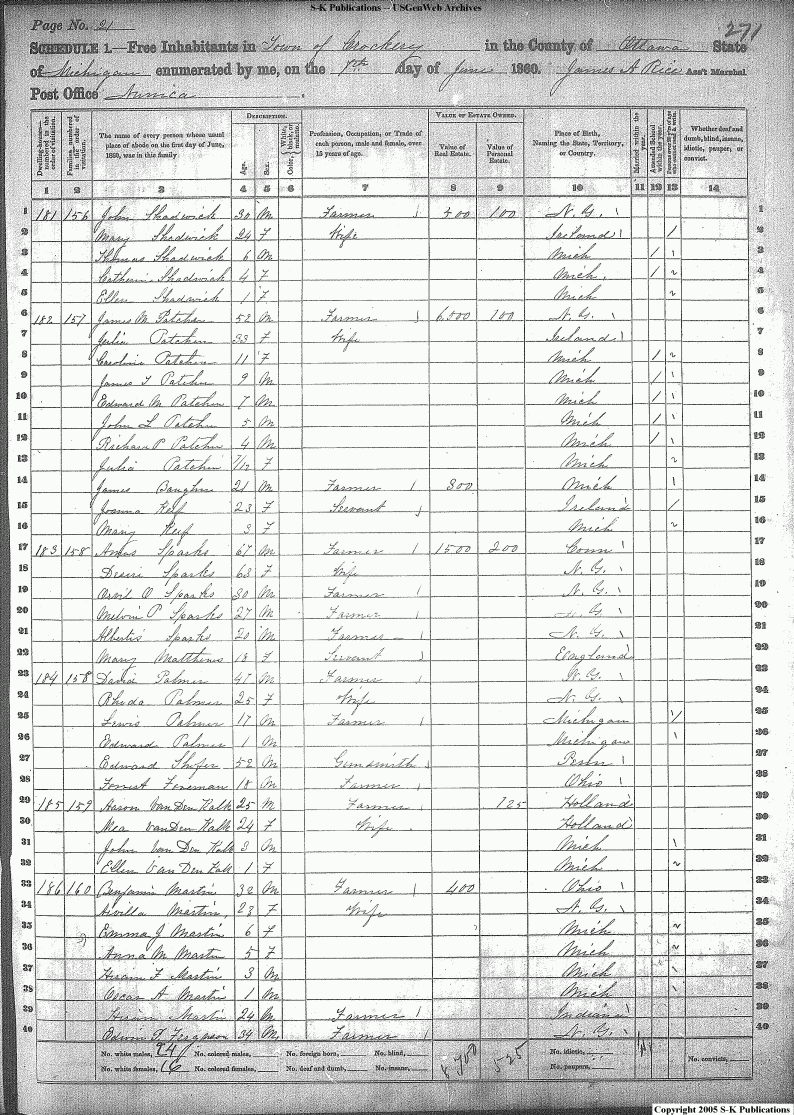 S-K Publications -- USGenWeb Archives
Page No. 21
271
SCHEDULE 1.—Free Inhabitants in Town of Crockery in the County of Ottawa State
of Michigan enumerated by me, on the 8th day of June 1860. James A Rice Ass't Marshal
Post Office Nunica
Dwelling-houses—numbered in the order of visitation.
Families numbered in the order of visitation.
The name of every person whose usual place of abode on the first day of June, 1860, was in this family
DESCRIPTION.
Age.
Sex.
Color, White, black, or mulatto.
Profession, Occupation, or Trade of each person, male and female, over 15 years of age.
VALUE OF ESTATE OWNED.
Value of Real Estate.
Value of Personal Estate.
Place of Birth, Naming the State, Territory, or Country.
Married within the year.
Attended School within the year.
Whether deaf and dumb, blind, insane, idiotic, pauper, or convict.
1 2 3 4 5 6 7 8 9 10 11 12 13 14
1 181 156 John Shadwick 30 M Farmer 100 N.Y. 1
2 Mary Shadwick 24 F Wife Ireland / 2
3 Thomas Shadwick 6 M Mich / 3
4 Catherin Shadwick 4 F Mich. / 4
5 Ellen Shadwick 1 F Mich 5
6 182 157 James M Patchin 52 M Farmer 6,000 100 N.Y. 6
7 Julia Patchin 33 F Wife Ireland 7
8 Caroline Patchin 11 F Mich / 8
9 James T Patchin 9 M Mich / 9
10 Edward M Patchin 7 M Mich / 10
11 John L Patchin 5 M Mich / 11
12 Richard P Patchin 4 M Mich / 12
13 Julia Patchin 7/12 F Mich 13
14 James 21 M Farmer 800 Mich 14
15 Joanna Keef 23 F Servant Ireland / 15
16 Mary Keef 3 F Mich 16
17 183 158 Amos Sparks 67 M Farmer 1500 200 Conn 17
18 Desire Sparks 63 F Wife N.Y. 18
19 Orvil O Sparks 30 M Farmer N.Y. 19
20 Melvin P Sparks 27 M Farmer N.Y. 20
21 Albertis Sparks 20 M Farmer N.Y. 21
22 Mary Matthews 18 F Servant England 22
23 184 158 David Palmer 47 M Farmer N.Y. 23
24 Rhuda Palmer 25 F Wife N.Y. 24
25 Lewis Palmer 17 M Farmer Michigan 25
26 Edward Palmer 1 M Michigan 26
27 Edward 52 M Gunsmith Penn 27
28 Forrest Foreman 18 M Farmer Ohio 28
29 185 159 Aaron VanDen Kalk 25 M Farmer 125 Holland 29
30 Mea VanDen Kalk 24 F Wife Holland 30
31 John VanDen Kalk 3 M Mich 31
32 Ellen Van Den Kalk 1 F Mich 32
33 186 160 Benjamin Martin 32 M Farmer 400 Ohio 33
34 Arvilla Martin 23 F Wife N.Y. 34
35 Emma J Martin 6 F Mich 35
36 Anna M Martin 5 F Mich 36
37 Hiram F Martin 3 M Mich 37
38 Oscar A Martin 1 M Mich 38
39 Hiram Martin 24 M Farmer Indiana 39
40 Edwin T Ferguson 34 M Farmer N.Y. 40
No. white males, 24 No. colored males, No. foreign born, No. blind, 525 No. idiotic, No. convicts,
No. white females, 16 No. colored females, No. deaf and dumb, No. insane, No. paupers,
Copyright 2005 S-K Publications